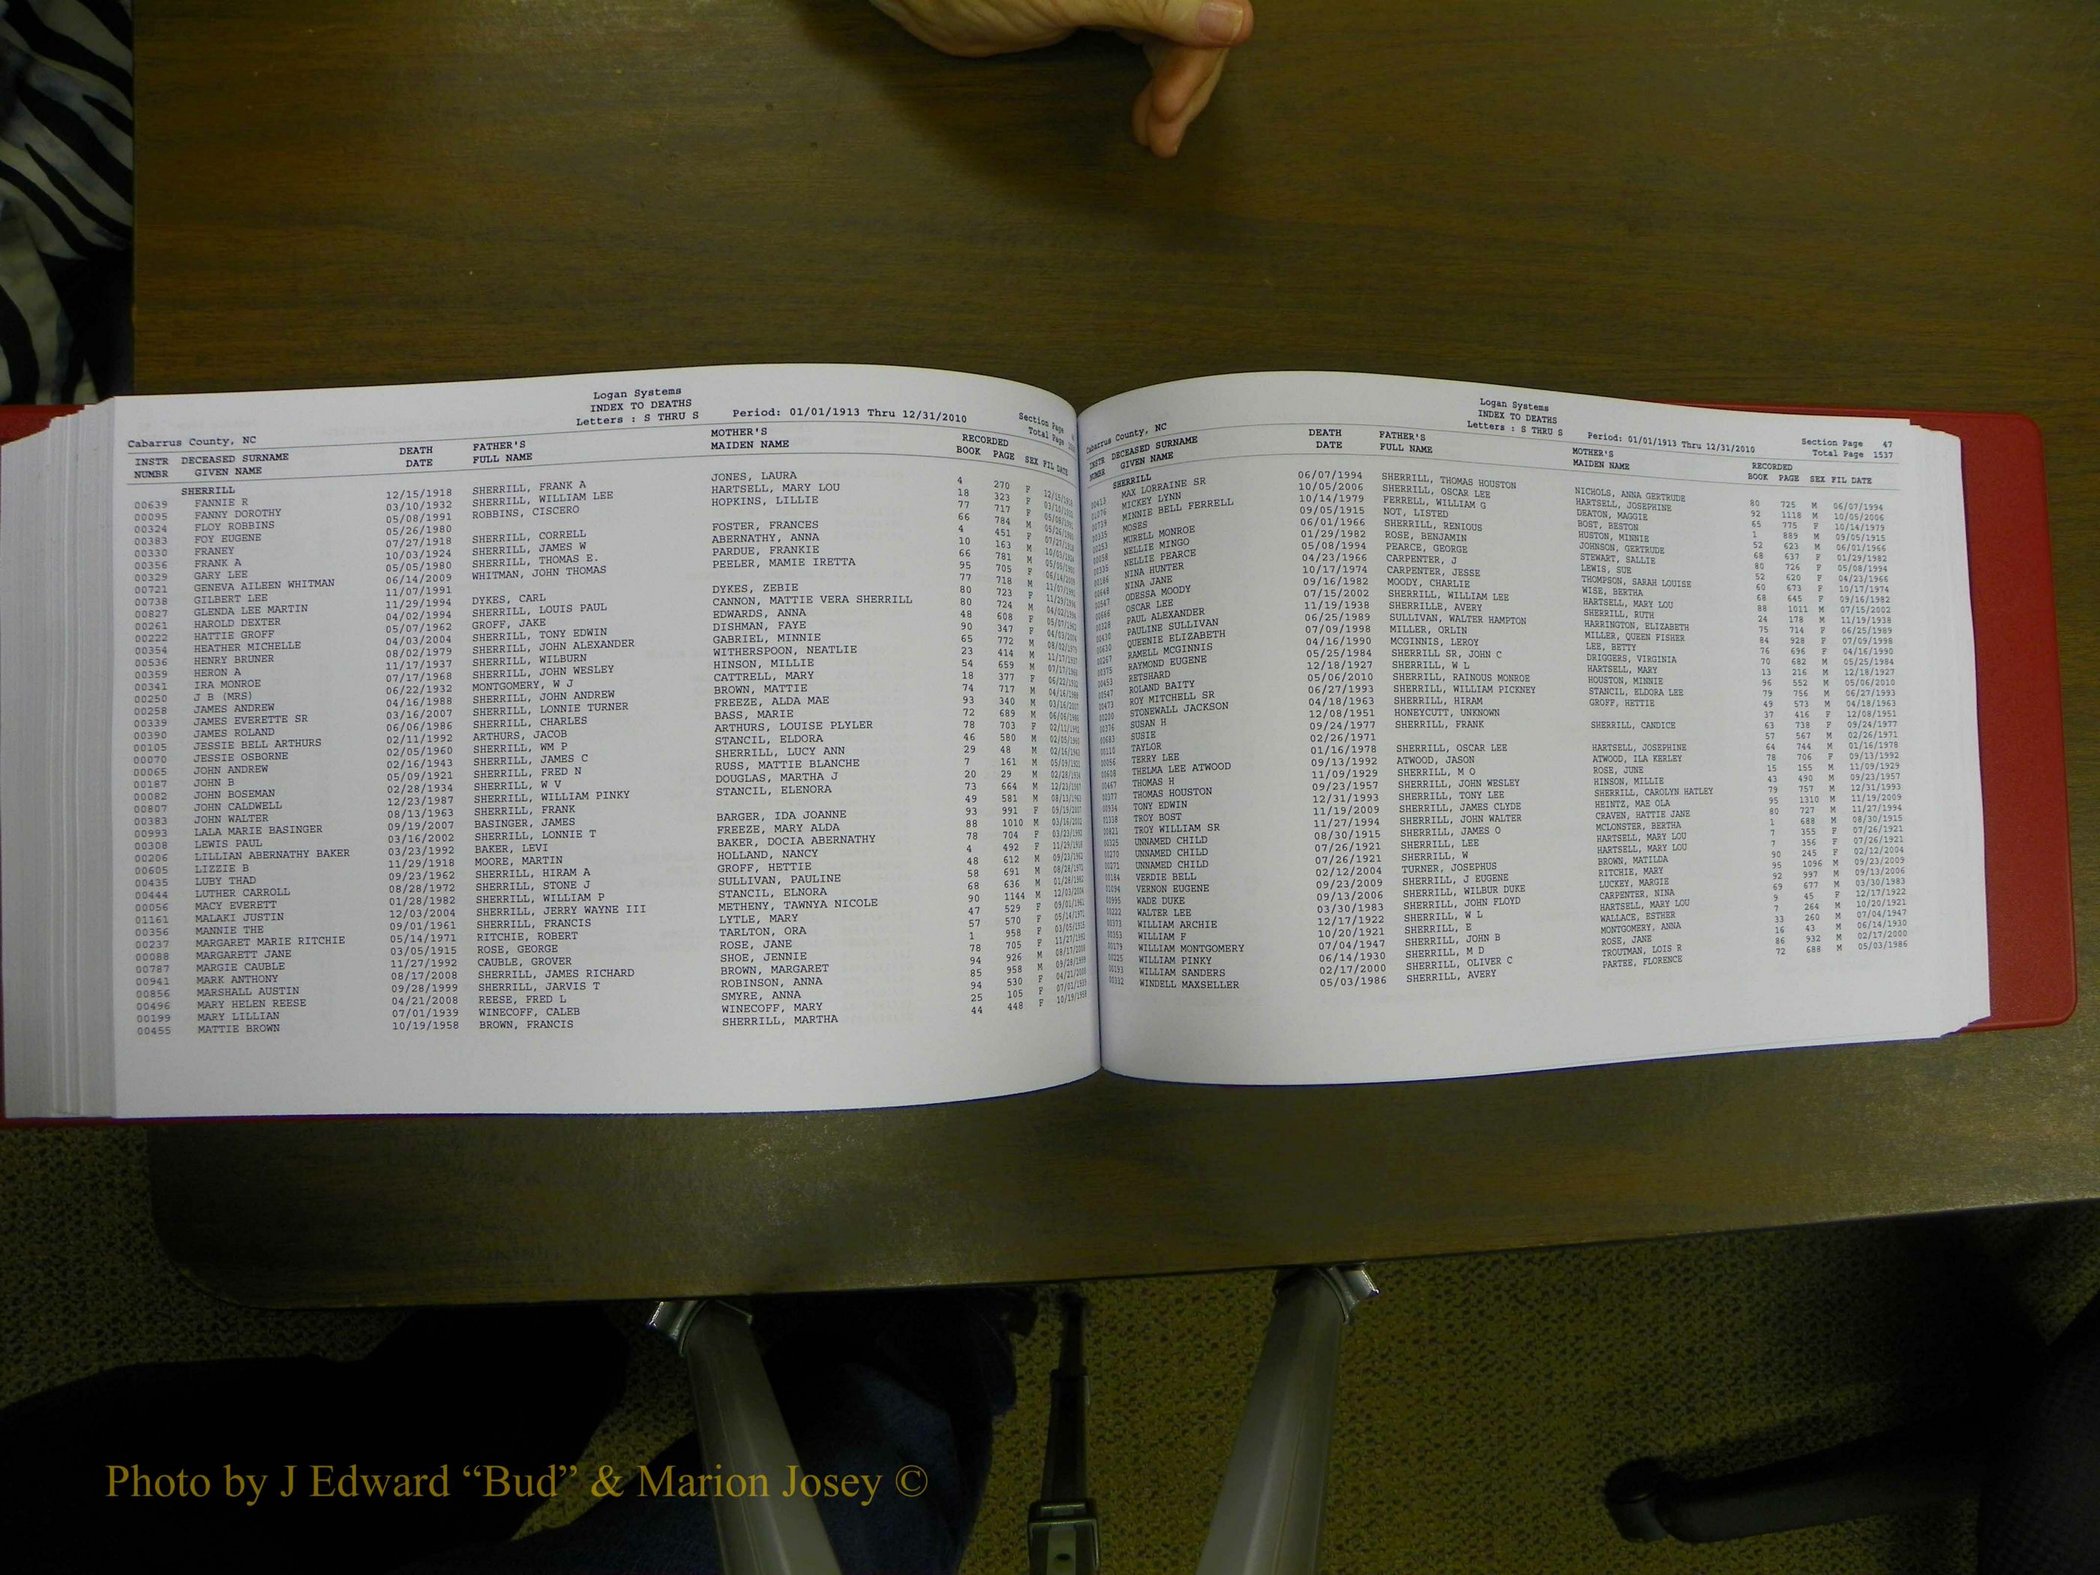 Logan Systems
INDEX TO DEATHS
Letters : S THRU S Period: 01/01/1913 Thru 12/31/2010
Cabarrus County, NC Section Page Total Page
INSTR NUMBR DECEASED SURNAME GIVEN NAME DEATH DATE FATHER'S FULL NAME MOTHER'S MAIDEN NAME RECORDED BOOK PAGE SEX FIL DATE
SHERRILL
00639 FANNIE R 12/15/1918 SHERRILL, FRANK A JONES, LAURA 4 270 F 12/15/1918
00095 FANNY DOROTHY 03/10/1932 SHERRILL, WILLIAM LEE HARTSELL, MARY LOU 18 323 F 03/10/1932
00324 FLOY ROBBINS 05/08/1991 ROBBINS, CISCERO HOPKINS, LILLIE 77 717 F 05/08/1991
00383 FOY EUGENE 05/26/1980 66 784 M 05/26/1980
00330 FRANEY 07/27/1918 SHERRILL, CORRELL FOSTER, FRANCES 4 451 F 07/27/1918
00356 FRANK A 10/03/1924 SHERRILL, JAMES W ABERNATHY, ANNA 10 163 M 10/03/1924
00329 GARY LEE 05/05/1980 SHERRILL, THOMAS E. PARDUE, FRANKIE 66 781 M 05/05/1980
00721 GENEVA AILEEN WHITMAN 06/14/2009 WHITMAN, JOHN THOMAS PEELER, MAMIE IRETTA 95 705 F 06/14/2009
00738 GILBERT LEE 11/07/1991 77 718 M 11/07/1991
00827 GLENDA LEE MARTIN 11/29/1994 DYKES, CARL DYKES, ZEBIE 80 723 F 11/29/1994
00261 HAROLD DEXTER 04/02/1994 SHERRILL, LOUIS PAUL CANNON, MATTIE VERA SHERRILL 80 724 M 04/02/1994
00222 HATTIE GROFF 05/07/1962 GROFF, JAKE EDWARDS, ANNA 48 608 F 05/07/1962
00354 HEATHER MICHELLE 04/03/2004 SHERRILL, TONY EDWIN DISHMAN, FAYE 90 347 F 04/03/2004
00536 HENRY BRUNER 08/02/1979 SHERRILL, JOHN ALEXANDER GABRIEL, MINNIE 65 772 M 08/02/1979
00359 HERON A 11/17/1937 SHERRILL, WILBURN WITHERSPOON, NEATLIE 23 414 M 11/17/1937
00341 IRA MONROE 07/17/1968 SHERRILL, JOHN WESLEY HINSON, MILLIE 54 659 M 07/17/1968
00250 J B (MRS) 06/22/1932 MONTGOMERY, W J CATTRELL, MARY 18 377 F 06/22/1932
00258 JAMES ANDREW 04/16/1988 SHERRILL, JOHN ANDREW BROWN, MATTIE 74 717 M 04/16/1988
00339 JAMES EVERETTE SR 03/16/2007 SHERRILL, LONNIE TURNER FREEZE, ALDA MAE 93 340 M 03/16/2007
00390 JAMES ROLAND 06/06/1986 SHERRILL, CHARLES BASS, MARIE 72 689 M 06/06/1986
00105 JESSIE BELL ARTHURS 02/11/1992 ARTHURS, JACOB ARTHURS, LOUISE PLYLER 78 703 F 02/11/1992
00070 JESSIE OSBORNE 02/05/1960 SHERRILL, WM P STANCIL, ELDORA 46 580 M 02/05/1960
00065 JOHN ANDREW 02/16/1943 SHERRILL, JAMES C SHERRILL, LUCY ANN 29 48 M 02/16/1943
00187 JOHN B 05/09/1921 SHERRILL, FRED N RUSS, MATTIE BLANCHE 7 161 M 05/09/1921
00082 JOHN BOSEMAN 02/28/1934 SHERRILL, W V DOUGLAS, MARTHA J 20 29 M 02/28/1934
00807 JOHN CALDWELL 12/23/1987 SHERRILL, WILLIAM PINKY STANCIL, ELENORA 73 664 M 12/23/1987
00383 JOHN WALTER 08/13/1963 SHERRILL, FRANK 49 581 M 08/13/1963
00993 LALA MARIE BASINGER 09/19/2007 BASINGER, JAMES BARGER, IDA JOANNE 93 991 F 09/19/2007
00308 LEWIS PAUL 03/16/2002 SHERRILL, LONNIE T FREEZE, MARY ALDA 88 1010 M 03/16/2002
00206 LILLIAN ABERNATHY BAKER 03/23/1992 BAKER, LEVI BAKER, DOCIA ABERNATHY 78 704 F 03/23/1992
00605 LIZZIE B 11/29/1918 MOORE, MARTIN HOLLAND, NANCY 4 492 F 11/29/1918
00435 LUBY THAD 09/23/1962 SHERRILL, HIRAM A GROFF, HETTIE 48 612 M 09/23/1962
00444 LUTHER CARROLL 08/28/1972 SHERRILL, STONE J SULLIVAN, PAULINE 58 691 M 08/28/1972
00056 MACY EVERETT 01/28/1982 SHERRILL, WILLIAM P STANCIL, ELNORA 68 636 M 01/28/1982
01161 MALAKI JUSTIN 12/03/2004 SHERRILL, JERRY WAYNE III METHENY, TAWNYA NICOLE 90 1144 M 12/03/2004
00356 MANNIE THE 09/01/1961 SHERRILL, FRANCIS LYTLE, MARY 47 529 F 09/01/1961
00237 MARGARET MARIE RITCHIE 05/14/1971 RITCHIE, ROBERT TARLTON, ORA 57 570 F 05/14/1971
00088 MARGARETT JANE 03/05/1915 ROSE, GEORGE ROSE, JANE 1 958 F 03/05/1915
00787 MARGIE CAUBLE 11/27/1992 CAUBLE, GROVER SHOE, JENNIE 78 705 F 11/27/1992
00941 MARK ANTHONY 08/17/2008 SHERRILL, JAMES RICHARD BROWN, MARGARET 94 926 M 08/17/2008
00856 MARSHALL AUSTIN 09/28/1999 SHERRILL, JARVIS T ROBINSON, ANNA 85 958 M 09/28/1999
00496 MARY HELEN REESE 04/21/2008 REESE, FRED L SMYRE, ANNA 94 530 F 04/21/2008
00199 MARY LILLIAN 07/01/1939 WINECOFF, CALEB WINECOFF, MARY 25 105 F 07/01/1939
00455 MATTIE BROWN 10/19/1958 BROWN, FRANCIS SHERRILL, MARTHA 44 448 F 10/19/1958
Logan Systems
INDEX TO DEATHS
Letters : S THRU S Period: 01/01/1913 Thru 12/31/2010
Cabarrus County, NC Section Page 47 Total Page 1537
INSTR NUMBR DECEASED SURNAME GIVEN NAME DEATH DATE FATHER'S FULL NAME MOTHER'S MAIDEN NAME RECORDED BOOK PAGE SEX FIL DATE
SHERRILL
00413 MAX LORRAINE SR 06/07/1994 SHERRILL, THOMAS HOUSTON NICHOLS, ANNA GERTRUDE 80 725 M 06/07/1994
01076 MICKEY LYNN 10/05/2006 SHERRILL, OSCAR LEE HARTSELL, JOSEPHINE 92 1118 M 10/05/2006
00739 MINNIE BELL FERRELL 10/14/1979 FERRELL, WILLIAM G DEATON, MAGGIE 65 775 F 10/14/1979
00335 MOSES 09/05/1915 NOT, LISTED BOST, BESTON 1 889 M 09/05/1915
00253 MURELL MONROE 06/01/1966 SHERRILL, RENIOUS HUSTON, MINNIE 52 623 M 06/01/1966
00058 NELLIE MINGO 01/29/1982 ROSE, BENJAMIN JOHNSON, GERTRUDE 68 637 F 01/29/1982
00335 NELLIE PEARCE 05/08/1994 PEARCE, GEORGE STEWART, SALLIE 80 726 F 05/08/1994
00186 NINA HUNTER 04/23/1966 CARPENTER, J LEWIS, SUE 52 620 F 04/23/1966
00648 NINA JANE 10/17/1974 CARPENTER, JESSE THOMPSON, SARAH LOUISE 60 673 F 10/17/1974
00547 ODESSA MOODY 09/16/1982 MOODY, CHARLIE WISE, BERTHA 68 645 F 09/16/1982
00666 OSCAR LEE 07/15/2002 SHERRILL, WILLIAM LEE HARTSELL, MARY LOU 88 1011 M 07/15/2002
00328 PAUL ALEXANDER 11/19/1938 SHERRILLE, AVERY SHERRILL, RUTH 24 178 M 11/19/1938
00430 PAULINE SULLIVAN 06/25/1989 SULLIVAN, WALTER HAMPTON HARRINGTON, ELIZABETH 75 714 F 06/25/1989
00630 QUEENIE ELIZABETH 07/09/1998 MILLER, ORLIN MILLER, QUEEN FISHER 84 928 F 07/09/1998
00267 RAMELL MCGINNIS 04/16/1990 MCGINNIS, LEROY LEE, BETTY 76 696 F 04/16/1990
00375 RAYMOND EUGENE 05/25/1984 SHERRILL SR, JOHN C DRIGGERS, VIRGINIA 70 682 M 05/25/1984
00453 RETSHARD 12/18/1927 SHERRILL, W L HARTSELL, MARY 13 216 M 12/18/1927
00547 ROLAND BAITY 05/06/2010 SHERRILL, RAINOUS MONROE HOUSTON, MINNIE 96 552 M 05/06/2010
00473 ROY MITCHELL SR 06/27/1993 SHERRILL, WILLIAM PICKNEY STANCIL, ELDORA LEE 79 756 M 06/27/1993
00200 STONEWALL JACKSON 04/18/1963 SHERRILL, HIRAM GROFF, HETTIE 49 573 M 04/18/1963
00376 SUSAN H 12/08/1951 HONEYCUTT, UNKNOWN 37 416 F 12/08/1951
00683 SUSIE 09/24/1977 SHERRILL, FRANK SHERRILL, CANDICE 63 738 F 09/24/1977
00110 TAYLOR 02/26/1971 57 567 M 02/26/1971
00056 TERRY LEE 01/16/1978 SHERRILL, OSCAR LEE HARTSELL, JOSEPHINE 64 744 M 01/16/1978
00608 THELMA LEE ATWOOD 09/13/1992 ATWOOD, JASON ATWOOD, ILA KERLEY 78 706 F 09/13/1992
00467 THOMAS H 11/09/1929 SHERRILL, M O ROSE, JUNE 15 155 M 11/09/1929
00377 THOMAS HOUSTON 09/23/1957 SHERRILL, JOHN WESLEY HINSON, MILLIE 43 490 M 09/23/1957
00934 TONY EDWIN 12/31/1993 SHERRILL, TONY LEE SHERRILL, CAROLYN HATLEY 79 757 M 12/31/1993
01338 TROY BOST 11/19/2009 SHERRILL, JAMES CLYDE HEINTZ, MAE OLA 95 1310 M 11/19/2009
00821 TROY WILLIAM SR 11/27/1994 SHERRILL, JOHN WALTER CRAVEN, HATTIE JANE 80 727 M 11/27/1994
00325 UNNAMED CHILD 08/30/1915 SHERRILL, JAMES O MCLONSTER, BERTHA 1 688 M 08/30/1915
00270 UNNAMED CHILD 07/26/1921 SHERRILL, LEE HARTSELL, MARY LOU 7 355 F 07/26/1921
00271 UNNAMED CHILD 07/26/1921 SHERRILL, W HARTSELL, MARY LOU 7 356 F 07/26/1921
00184 VERDIE BELL 02/12/2004 TURNER, JOSEPHUS BROWN, MATILDA 90 245 F 02/12/2004
01094 VERNON EUGENE 09/23/2009 SHERRILL, J EUGENE RITCHIE, MARY 95 1096 M 09/23/2009
00995 WADE DUKE 09/13/2006 SHERRILL, WILBUR DUKE LUCKEY, MARGIE 92 997 M 09/13/2006
00222 WALTER LEE 03/30/1983 SHERRILL, JOHN FLOYD CARPENTER, NINA 69 677 M 03/30/1983
00373 WILLIAM ARCHIE 12/17/1922 SHERRILL, W L HARTSELL, MARY LOU 9 45 F 12/17/1922
00353 WILLIAM F 10/20/1921 SHERRILL, E WALLACE, ESTHER 7 264 M 10/20/1921
00179 WILLIAM MONTGOMERY 07/04/1947 SHERRILL, JOHN B MONTGOMERY, ANNA 33 260 M 07/04/1947
00225 WILLIAM PINKY 06/14/1930 SHERRILL, M D ROSE, JANE 16 43 M 06/14/1930
00193 WILLIAM SANDERS 02/17/2000 SHERRILL, OLIVER C TROUTMAN, LOIS R 86 932 M 02/17/2000
00332 WINDELL MAXSELLER 05/03/1986 SHERRILL, AVERY PARTEE, FLORENCE 72 688 M 05/03/1986
Photo by J Edward “Bud” & Marion Josey ©